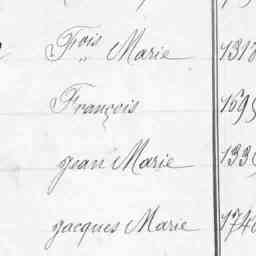 Fois Marie 1318
François 169
Jean Marie 133
Jacques Marie 174